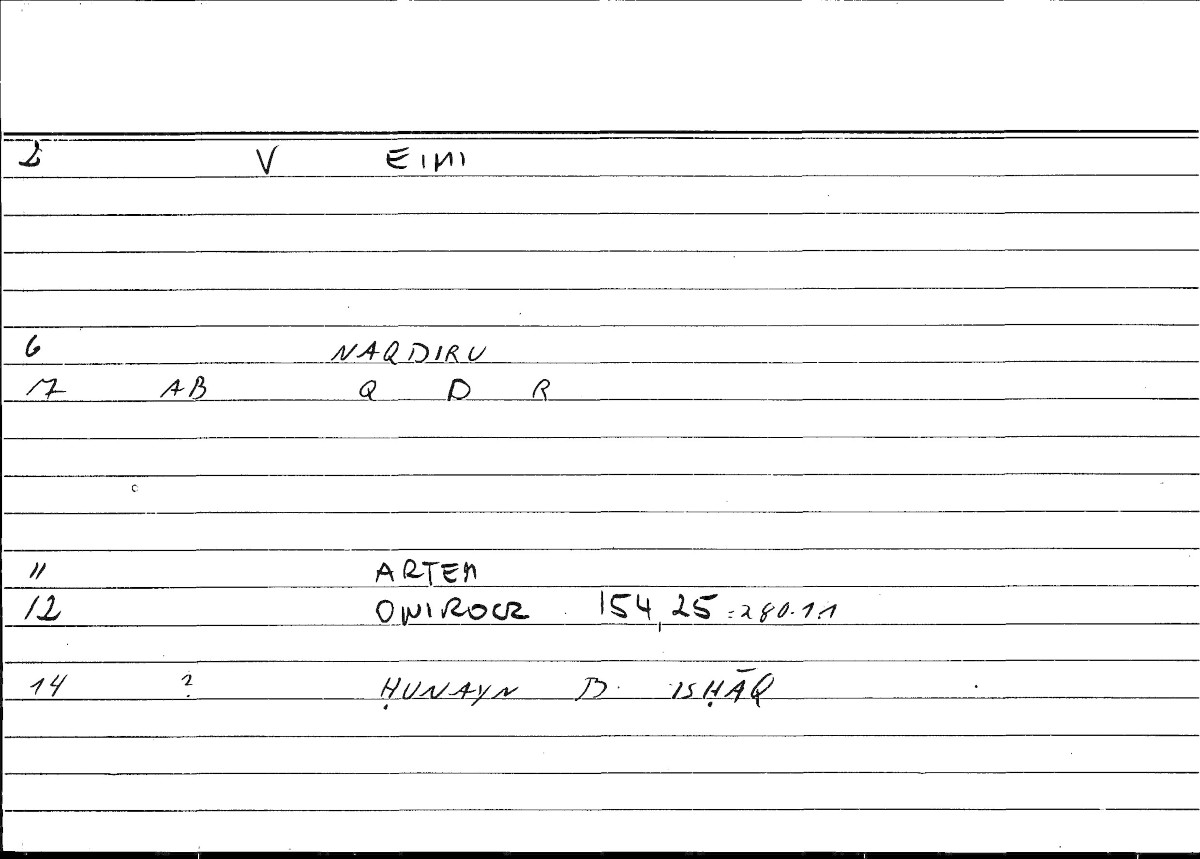 2 V EIMI
6 NAQDIRU
17 AB Q D R
11 ARTEM
12 ONIROCR 154,25 = 280.11
14 ? ḤUNAYN B. ISḤĀQ